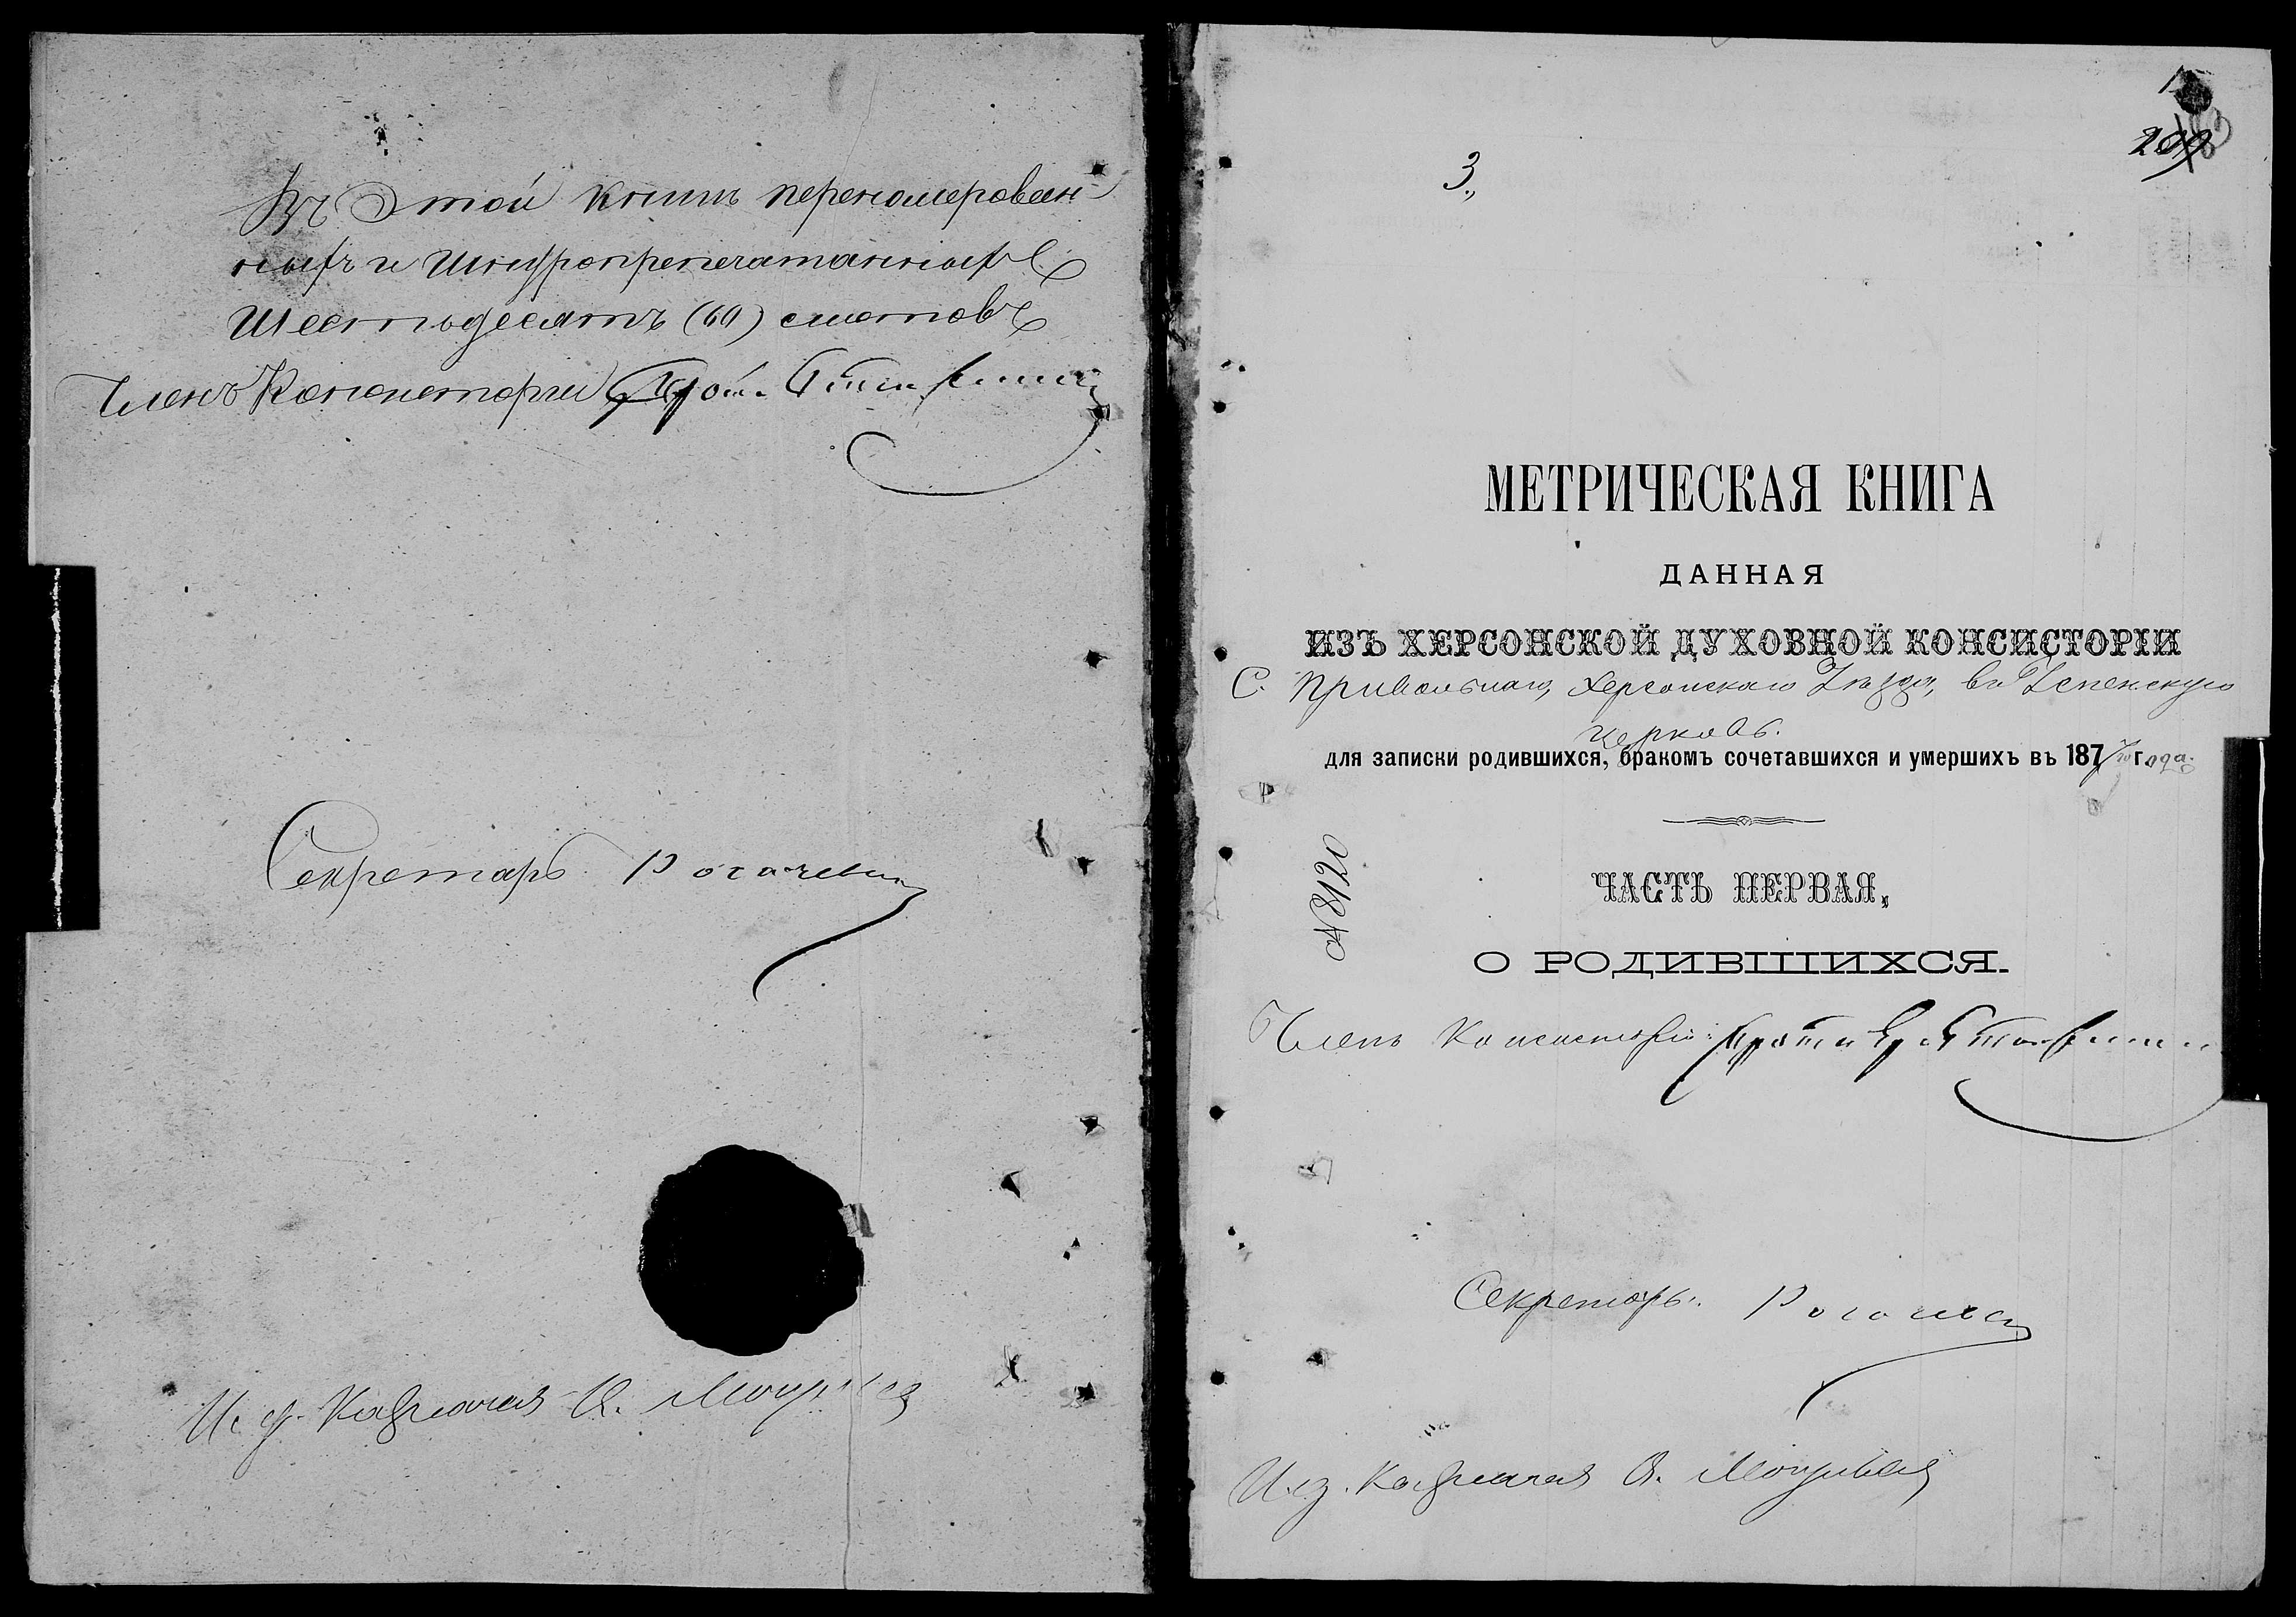 Въ Этой книгѣ перенумерован-
ныхъ и шнуропрепечатанныхъ
Шестьдесятъ (60) листовъ
Членъ Консисторіи Прот.
Секретарь
И. д. Казначея
1
209
3.,
МЕТРИЧЕСКАЯ КНИГА
ДАННАЯ
ИЗЪ ХЕРСОНСКОЙ ДУХОВНОЙ КОНСИСТОРІИ
С. Привольнаго, Херсонскаго Уѣзда, въ Успенскую
церковь.
для записки родившихся, бракомъ сочетавшихся и умершихъ въ 187 года.
№ 8120
ЧАСТЬ ПЕРВАЯ,
О РОДИВШИХСЯ.
Членъ Консисторіи:
Секретарь:
И. д. Казначея